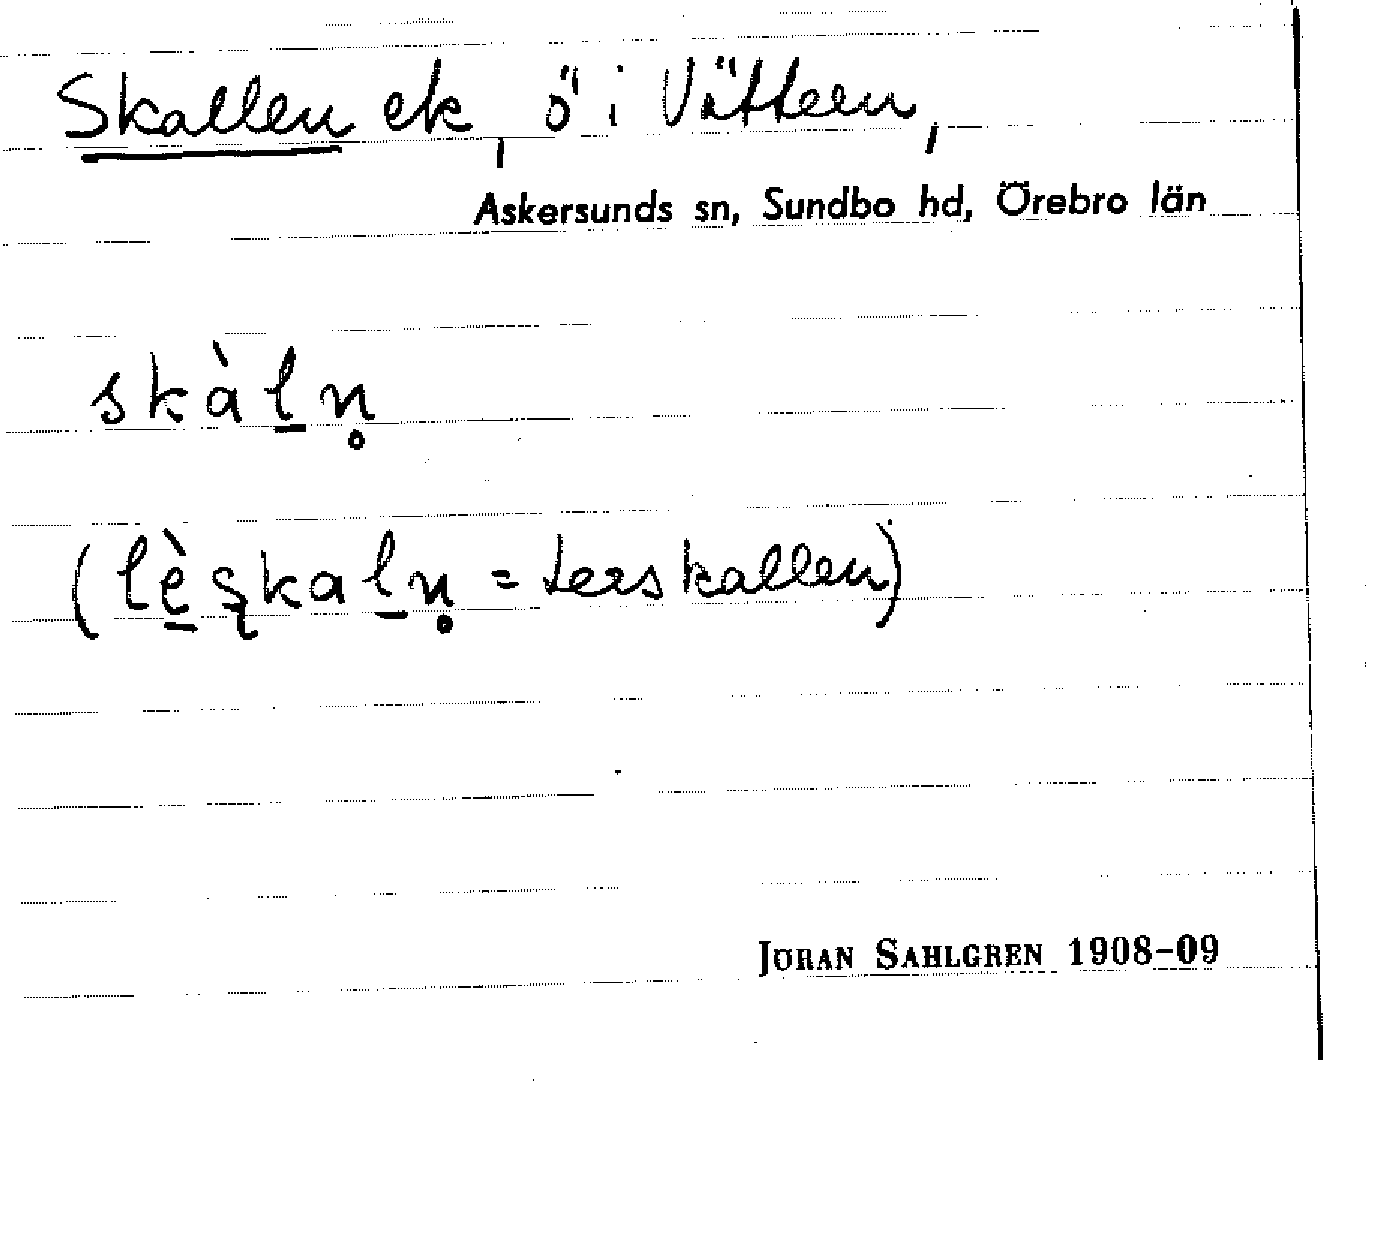 Skallen ek, ö i Vättern,
Askersunds sn, Sundbo hd, Örebro län
skàl̠n̥
(lè̠ʂkal̠n̥ = Lerskallen)
JÖRAN SAHLGREN 1908-09